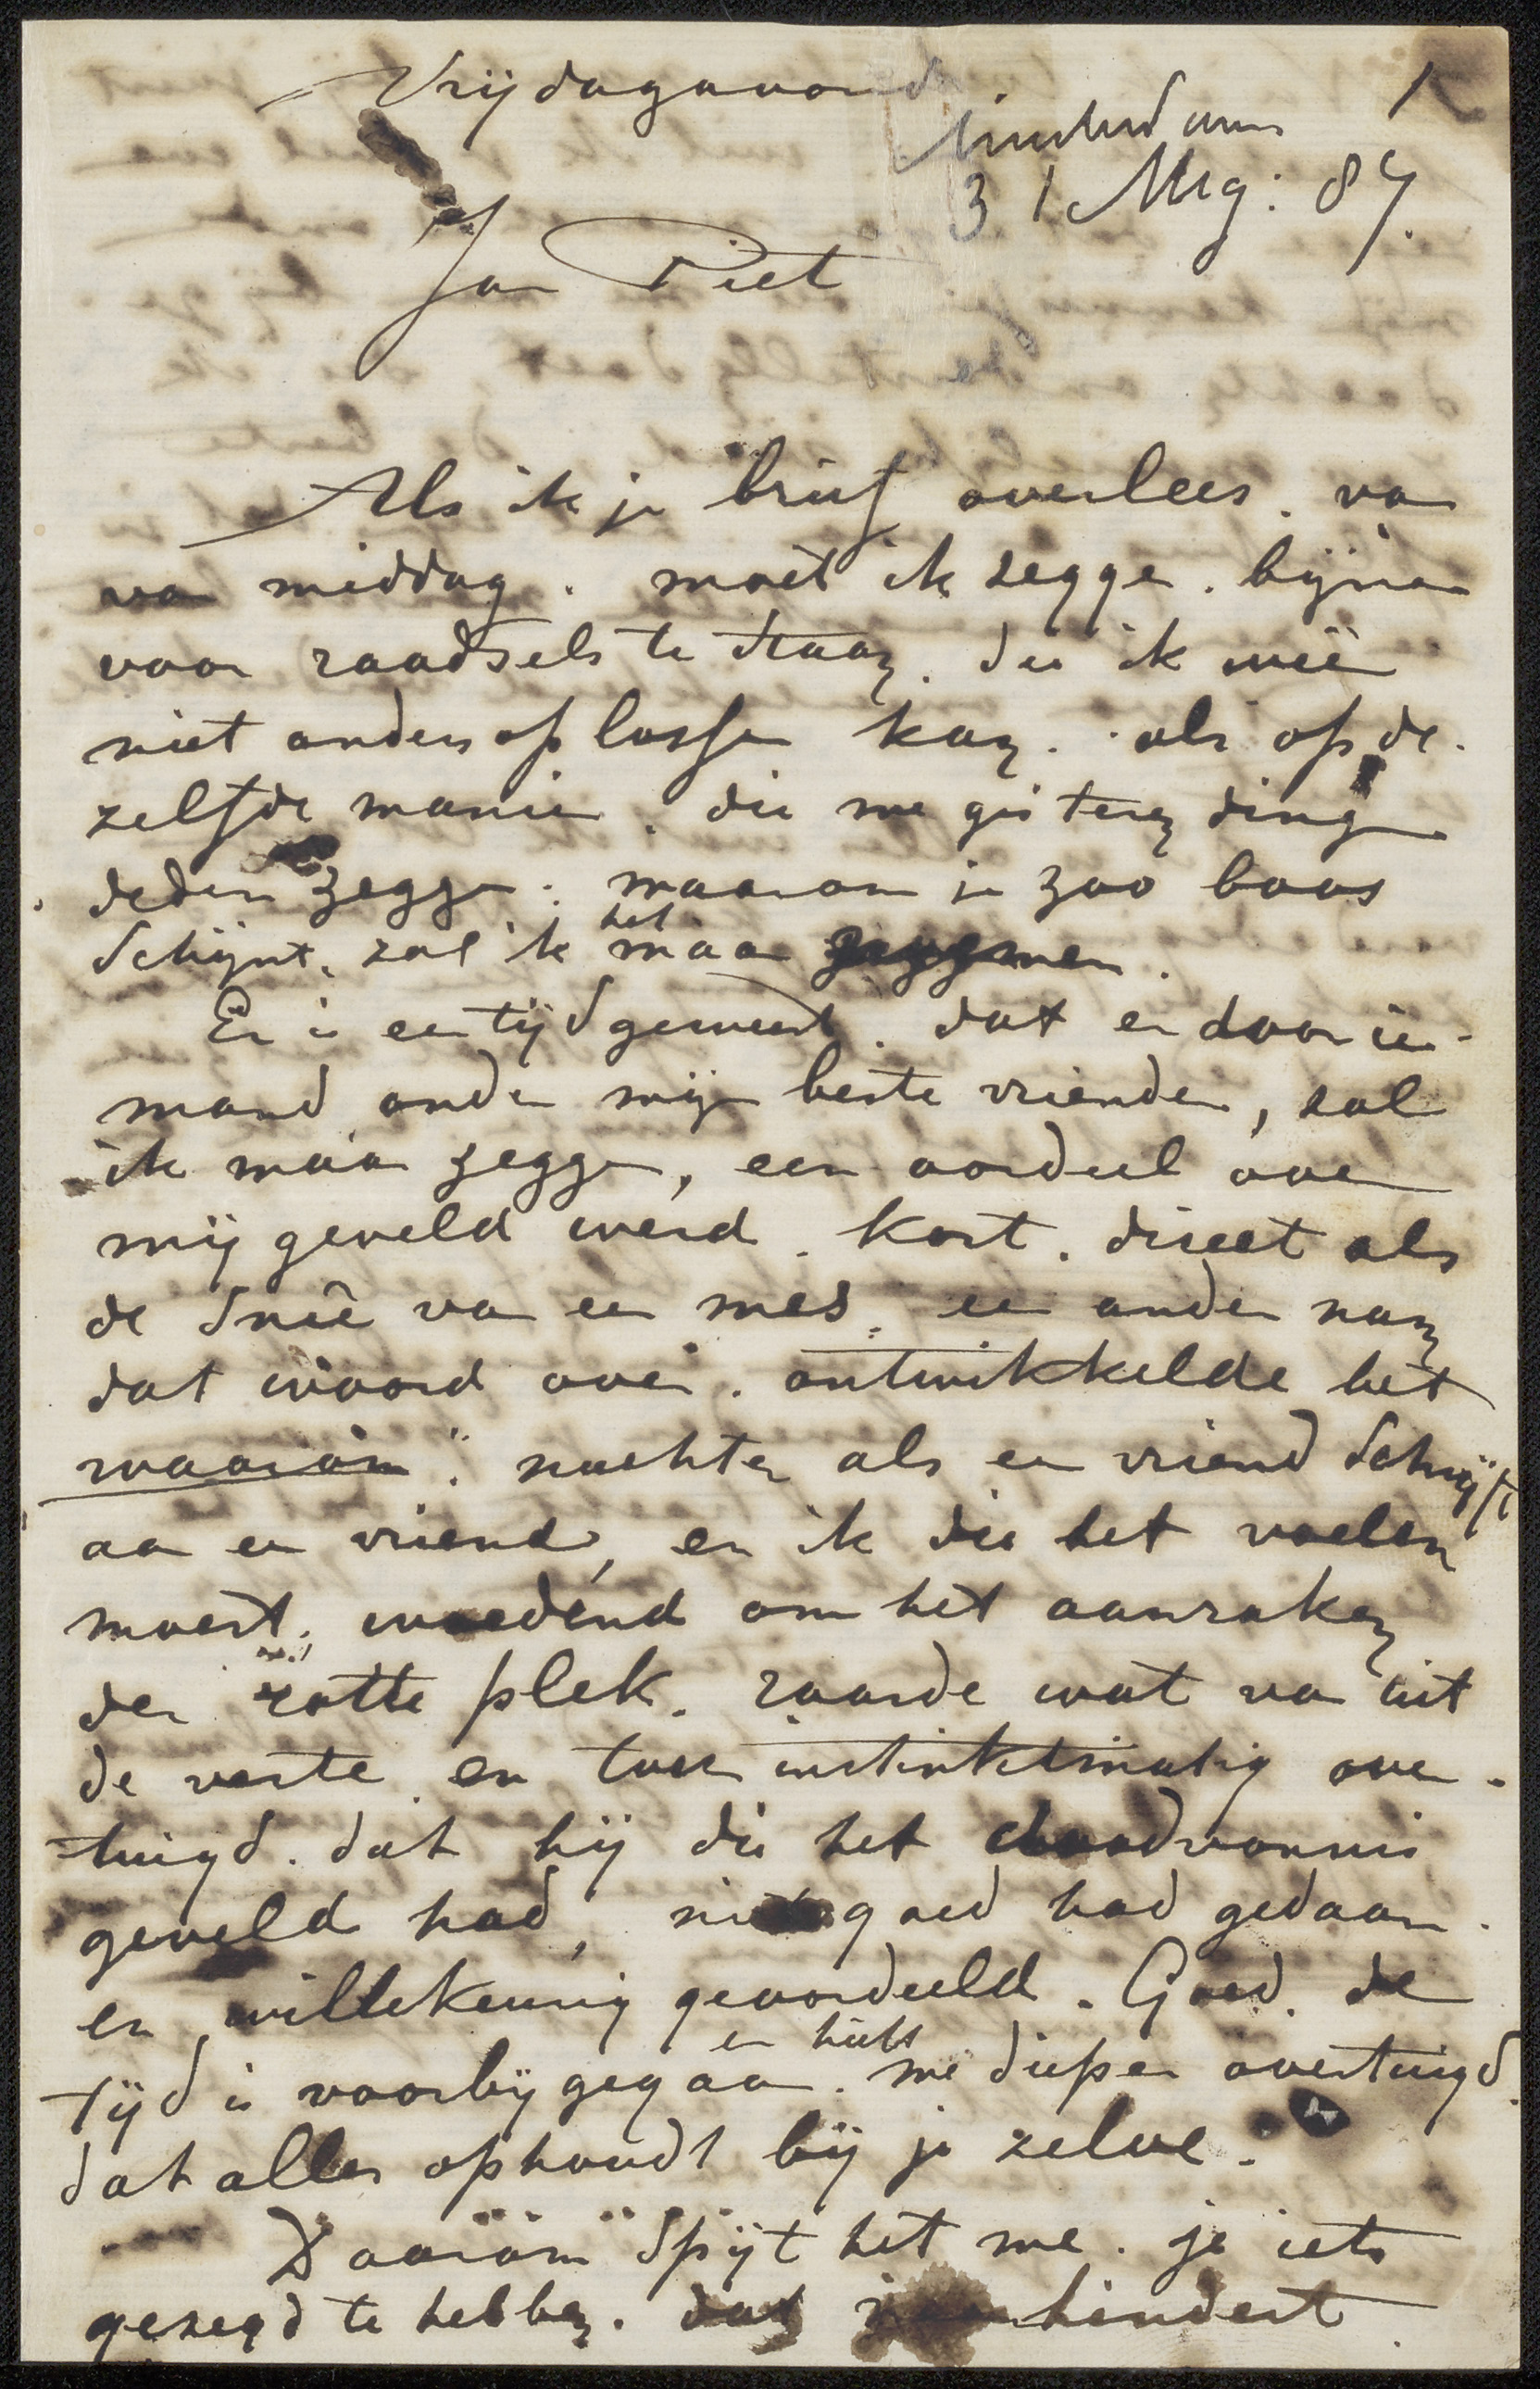 Vrijdagavond
Amsterdam 1
31 Aug: 87.
Jan Piet
Als ik je brief overlees. va
va middag. moet ik zegge. bijna
voor raadsels te staan. die ik weer
niet anders oplosse kan. als op de-
zelfde manier. die me gisteren dinge
deden zegge. waarom je zoo boos
schijnt. zal ik het maar
Er is een tijd geweest. dat er door ie-
mand onder mijn beste vrienden, zal
ik maar zegge, een oordeel over
mij geveld werd. kort. direct als
de sneê va een mes. een ander nam
dat woord over. ontwikkelde het
waarom. nuchter als een vriend schrijft
aan een vriend, en ik die het voelen
moest, woedend om het aanraken
der rotte plek. raasde wat va uit
de verte en toen instinktmatig over-
tuigd. dat hij die het doodvonnis
geveld had, niet goed had gedaan.
en willekeurig geoordeeld. Goed. de
tijd is voorbijgegaan. en hield me dieper overtuigd.
dat alles ophoudt bij je zelve.
Daarom spijt het me. je iets
gezegd te hebben. dat je hindert